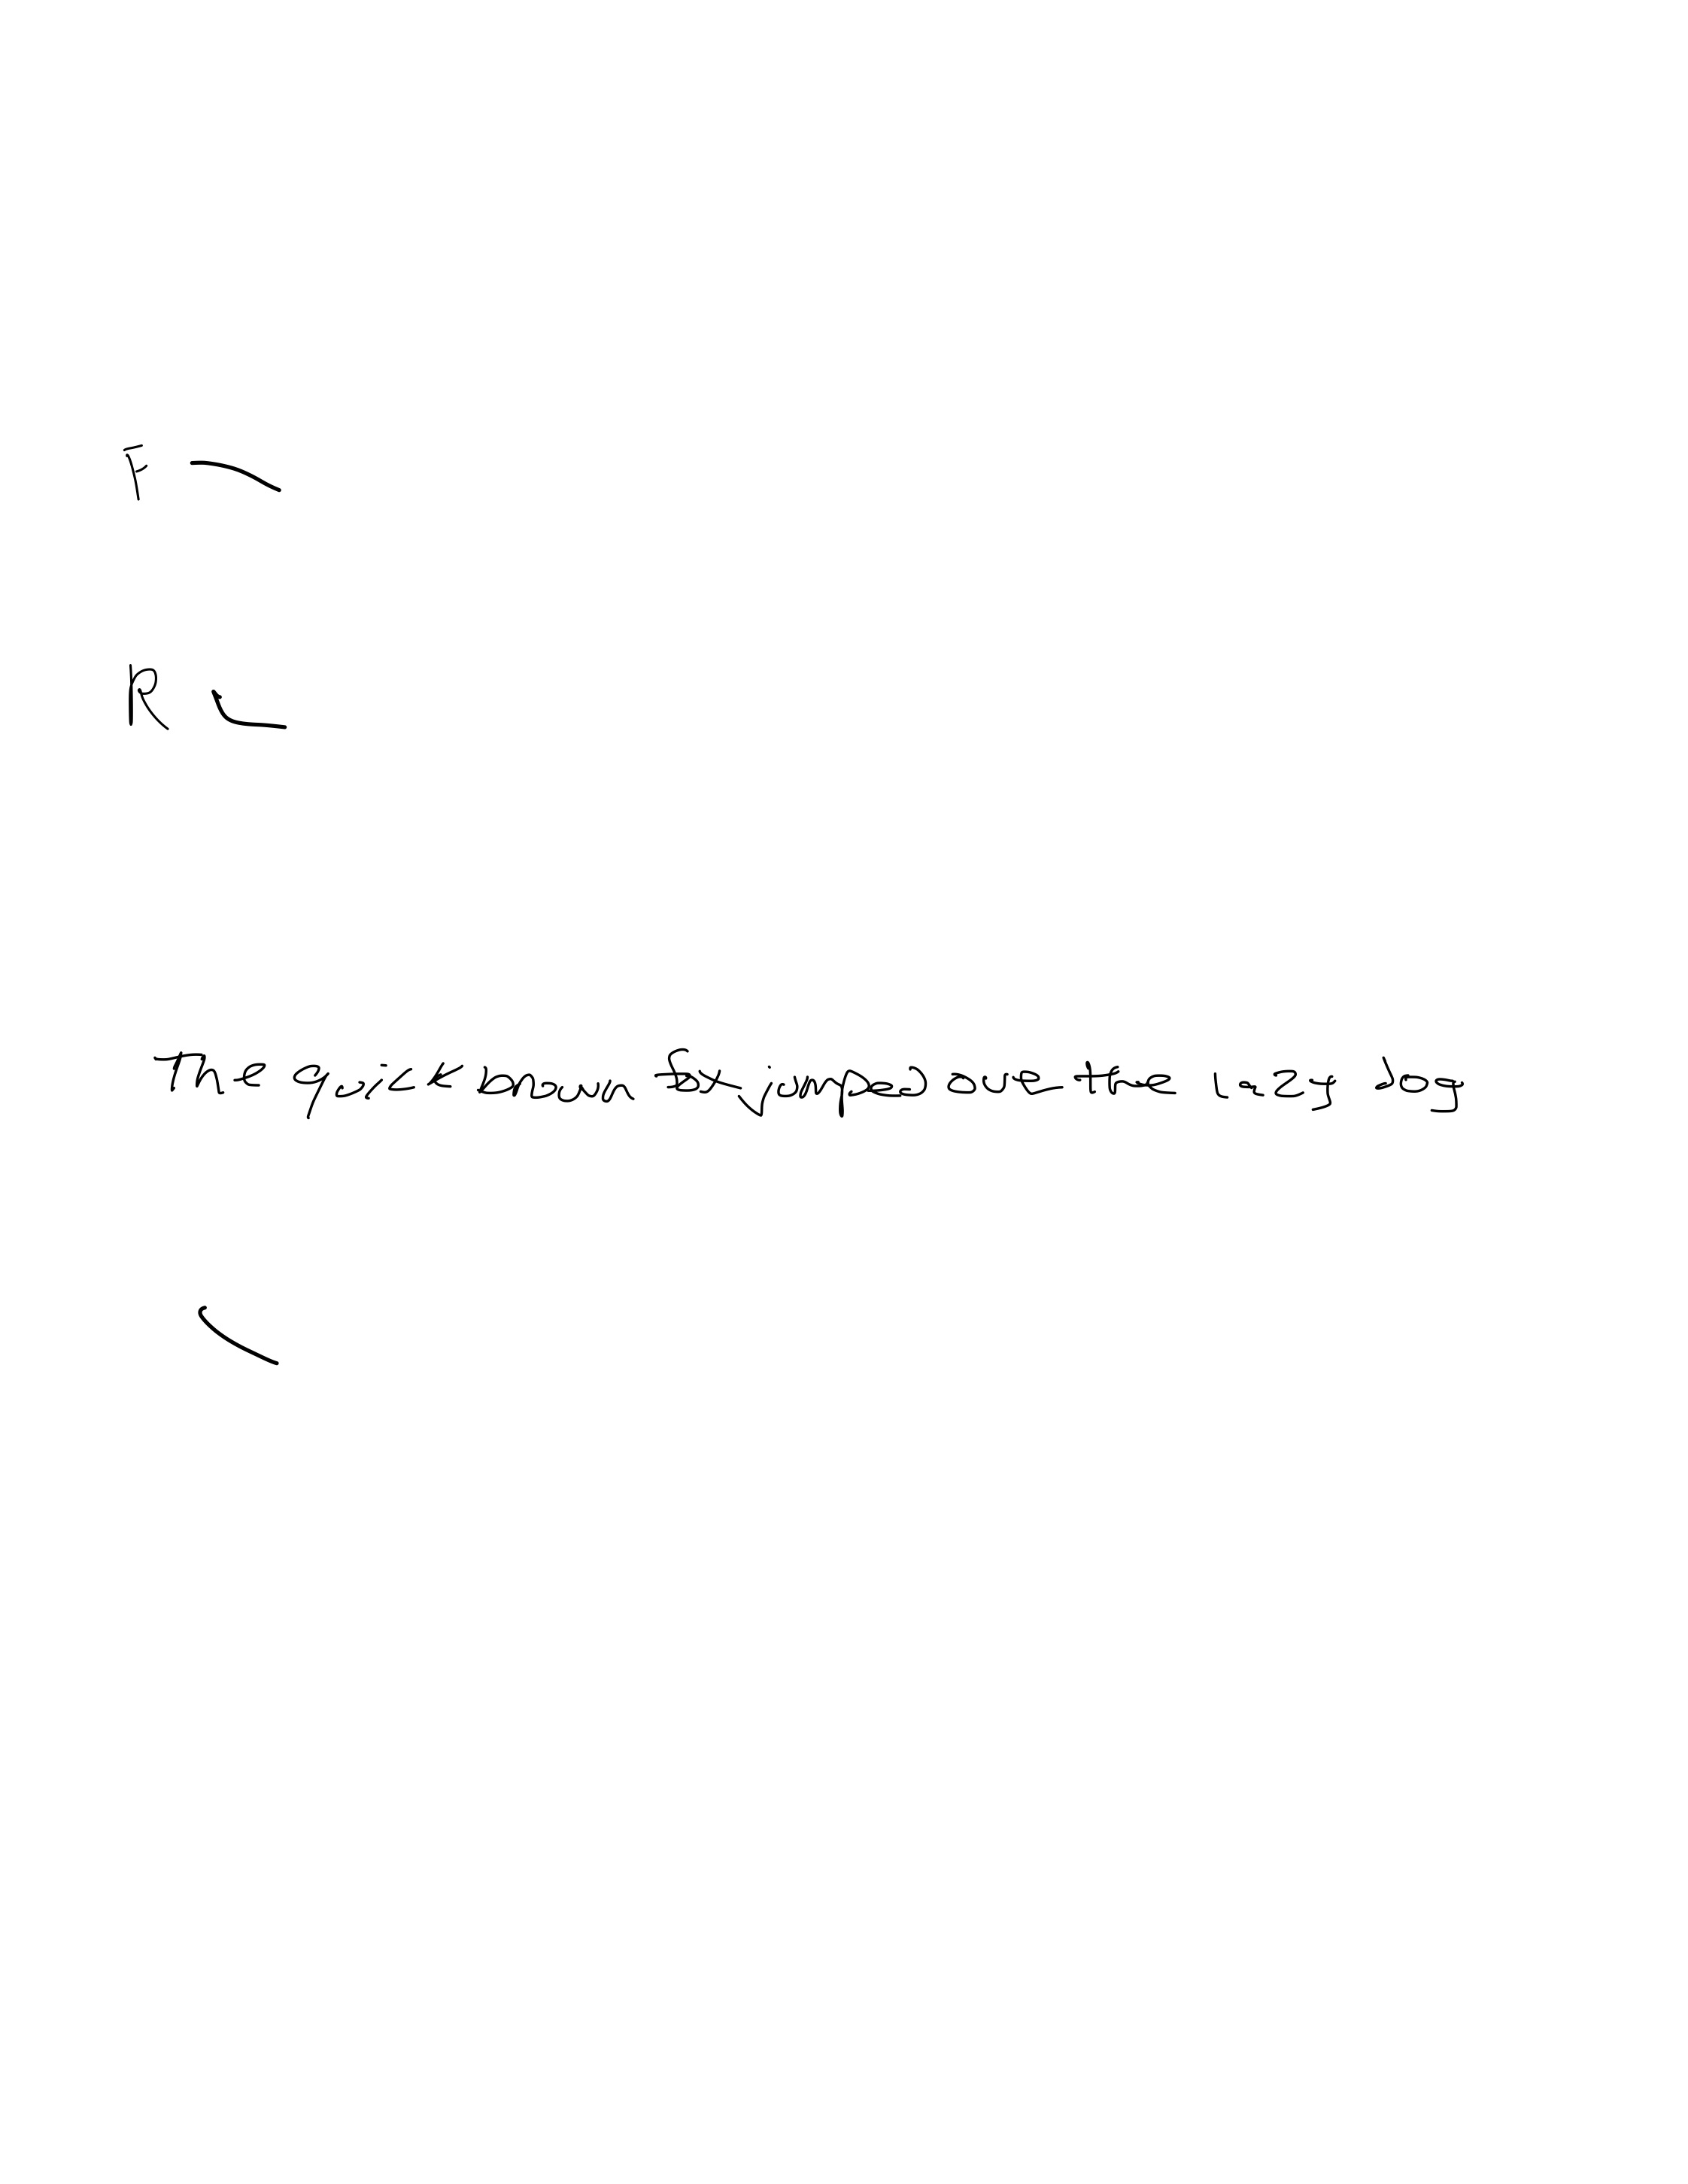 F
R
The quick brown fox jumped over the lazy dog